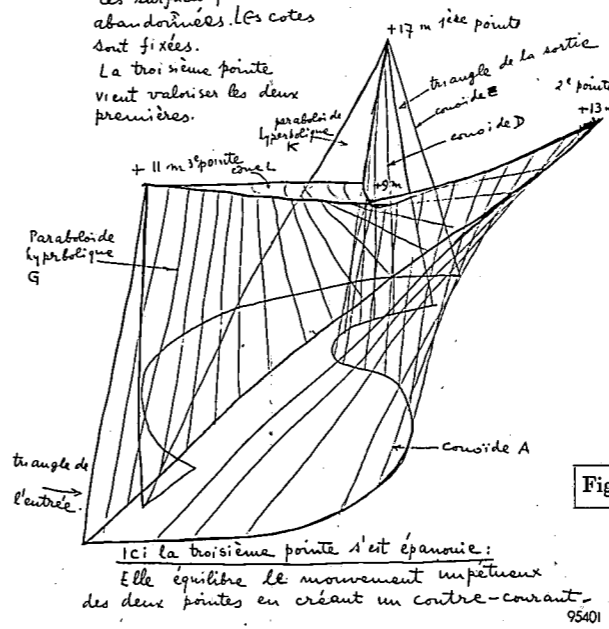 abandonnées. Les cotes
sont fixées.
La troisième pointe
vient valoriser les deux
premières.
+17 m 1ère pointe
triangle de la sortie
conoïde E
2e pointe
+13 m
paraboloïde
hyperbolique
K
conoïde D
+ 11 m 3e pointe
cone L
+9 m
Paraboloïde
hyprbolique
G
conoïde A
triangle de
l'entrée.
Fig
Ici la troisième pointe s'est épanouie :
Elle équilibre le mouvement impétueux
des deux pointes en créant un contre-courant.
95401